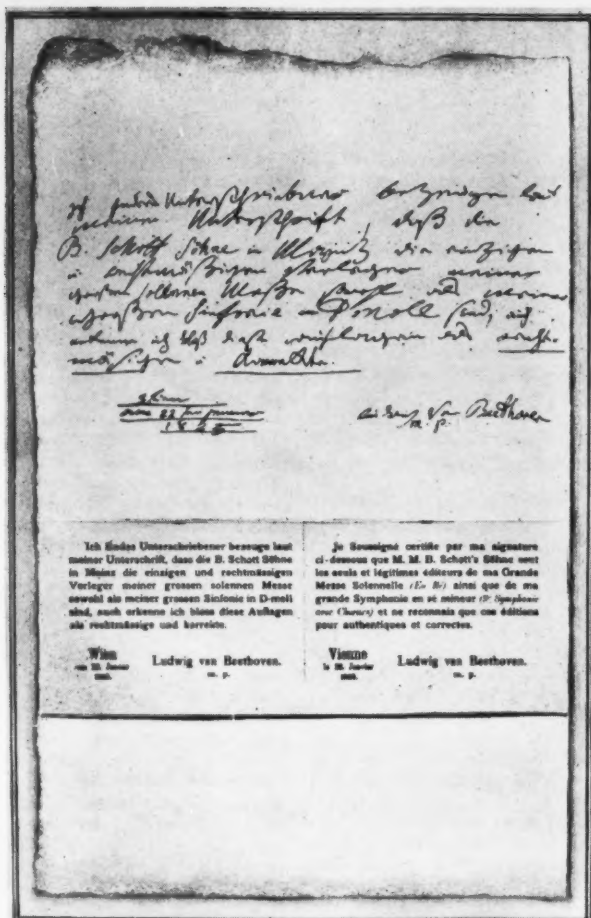 Unterschriebener bezeuge laut
meiner Unterschrift, daß die
B. Schott Söhne in Mainz die einzigen
Verleger meiner
großen solennen Meße sowohl als meiner
großen Sinfonie in D moll sind, auch
erkenne ich bloß diese Auflagen als recht-
mäßige
Wien
am 22ten jenner
1825
Ludwig van Beethoven
m. p.
Ich Endes Unterschriebener bezeuge laut
meiner Unterschrift, dass die B. Schott Söhne
in Mainz die einzigen und rechtmässigen
Verleger meiner grossen solennen Messe
sowohl als meiner grossen Sinfonie in D-moll
sind, auch erkenne ich bloss diese Auflagen
als rechtmässige und korrekte.
Wien
Ludwig van Beethoven.
m. p.
Je Soussigné certifie par ma signature
ci-dessous que M. M. B. Schott's Söhne sont
les seuls et légitimes éditeurs de ma Grande
Messe Solennelle (En Ré) ainsi que de ma
grande Symphonie en ré mineur (9e Symphonie
avec Chœurs) et ne reconnais que ces éditions
pour authentiques et correctes.
Vienne
Ludwig van Beethoven.
m. p.